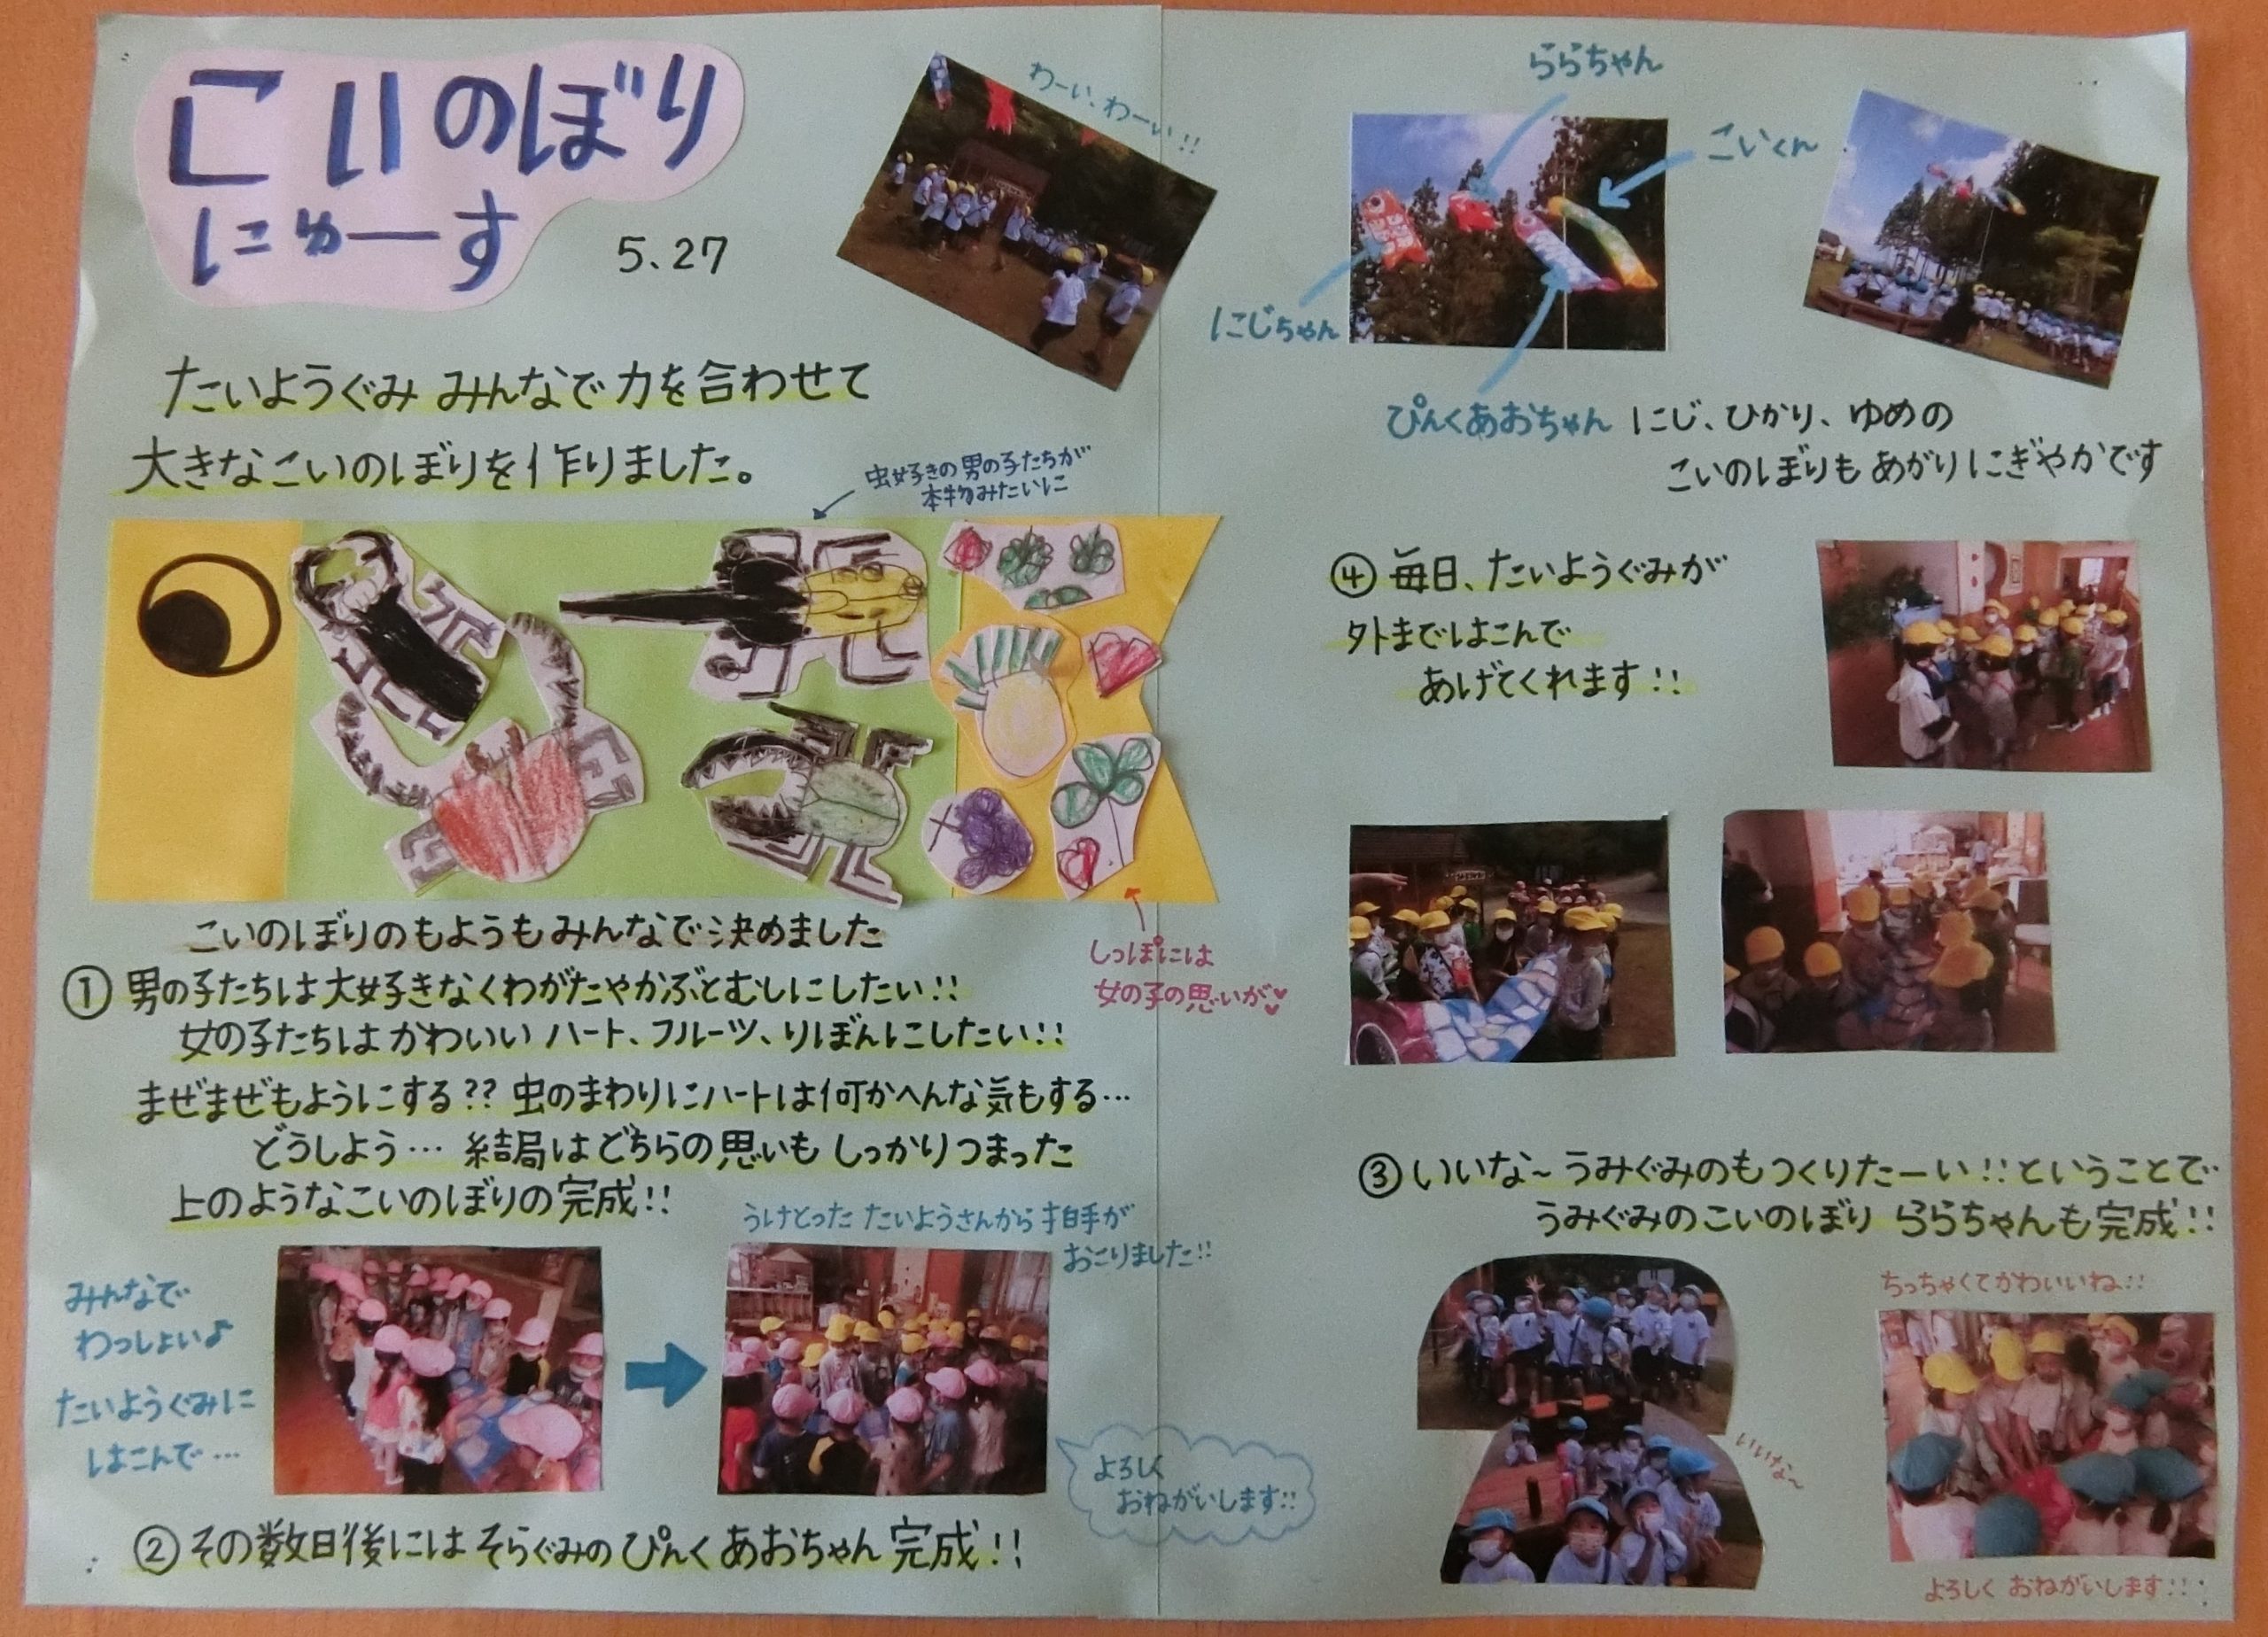 こいのぼり
にゅーす
5.27
わーい、わーい!!
たいようぐみ みんなで力を合わせて
大きなこいのぼりを作りました。
虫好きの男の子たちが
本物みたいに
しっぽには
女の子の思いが♥
こいのぼりのもようもみんなで決めました
① 男の子たちは大好きなくわがたやかぶとむしにしたい!!
女の子たちはかわいい ハート、フルーツ、りぼんにしたい!!
まぜまぜもようにする?? 虫のまわりにハートは何かへんな気もする…
どうしよう… 結局はどちらの思いも しっかりつまった
上のようなこいのぼりの完成!!
みんなで
わっしょい♪
たいようぐみに
はこんで…
うけとった たいようさんから拍手が
おこりました!!
よろしく
おねがいします!!
② その数日後には そらぐみの ぴんく あおちゃん 完成!!
ららちゃん
こいくん
にじちゃん
ぴんくあおちゃん
にじ、ひかり、ゆめの
こいのぼりも あがりにぎやかです
④ 毎日、たいようぐみが
外まではこんで
あげてくれます!!
③ いいな~ うみぐみのもつくりたーい!! ということで
うみぐみのこいのぼり ららちゃんも完成!!
いいな~
ちっちゃくてかわいいね!!
よろしく おねがいします!!